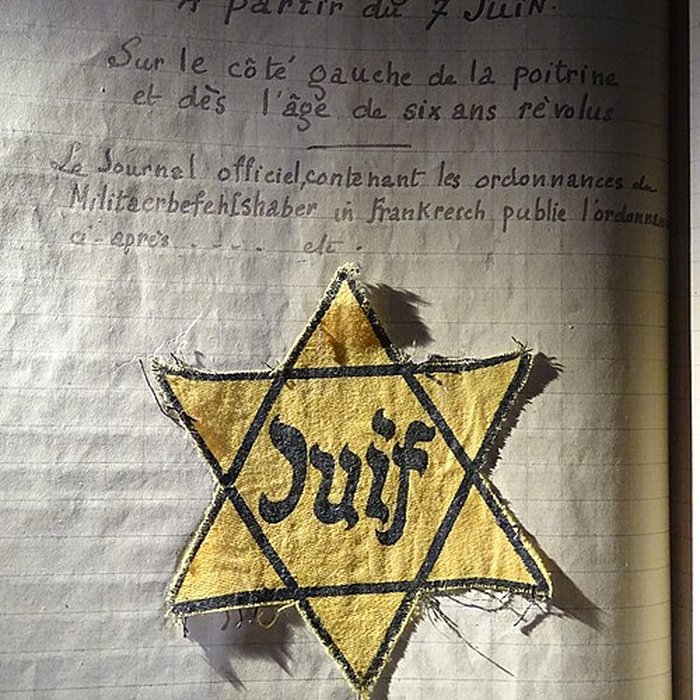 A partir du 7 Juin.
Sur le côté gauche de la poitrine
et dès l'âge de six ans révolus
Le Journal officiel, contenant les ordonnances du
Militaerbefehlshaber in Frankreich publie l'ordonnance
ci-après ..... etc.
Juif